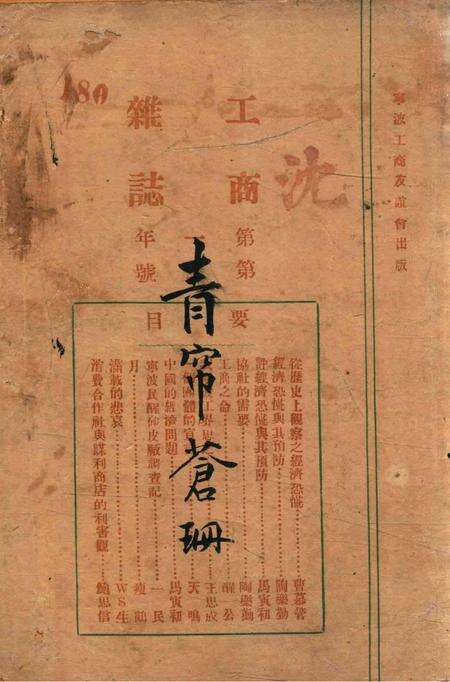 寧波工商友誼會出版
沈
480
工商
雜誌
第 年
第 號
要目
青帘蒼珊
從歷史上觀察之經濟恐慌 曹慕管
經濟恐慌與其預防 陶樂勤
評經濟恐慌與其預防 馬寅初
協社的需要 陶樂勤
工商之命 醒公
王忠成
天鳴
中國的經濟問題 馬寅初
寧波民醒伸皮廠調查記 一民
月 瘦鶴
滿載的悲哀 WS生
消費合作社與謀利商店的利害觀 鮑思信